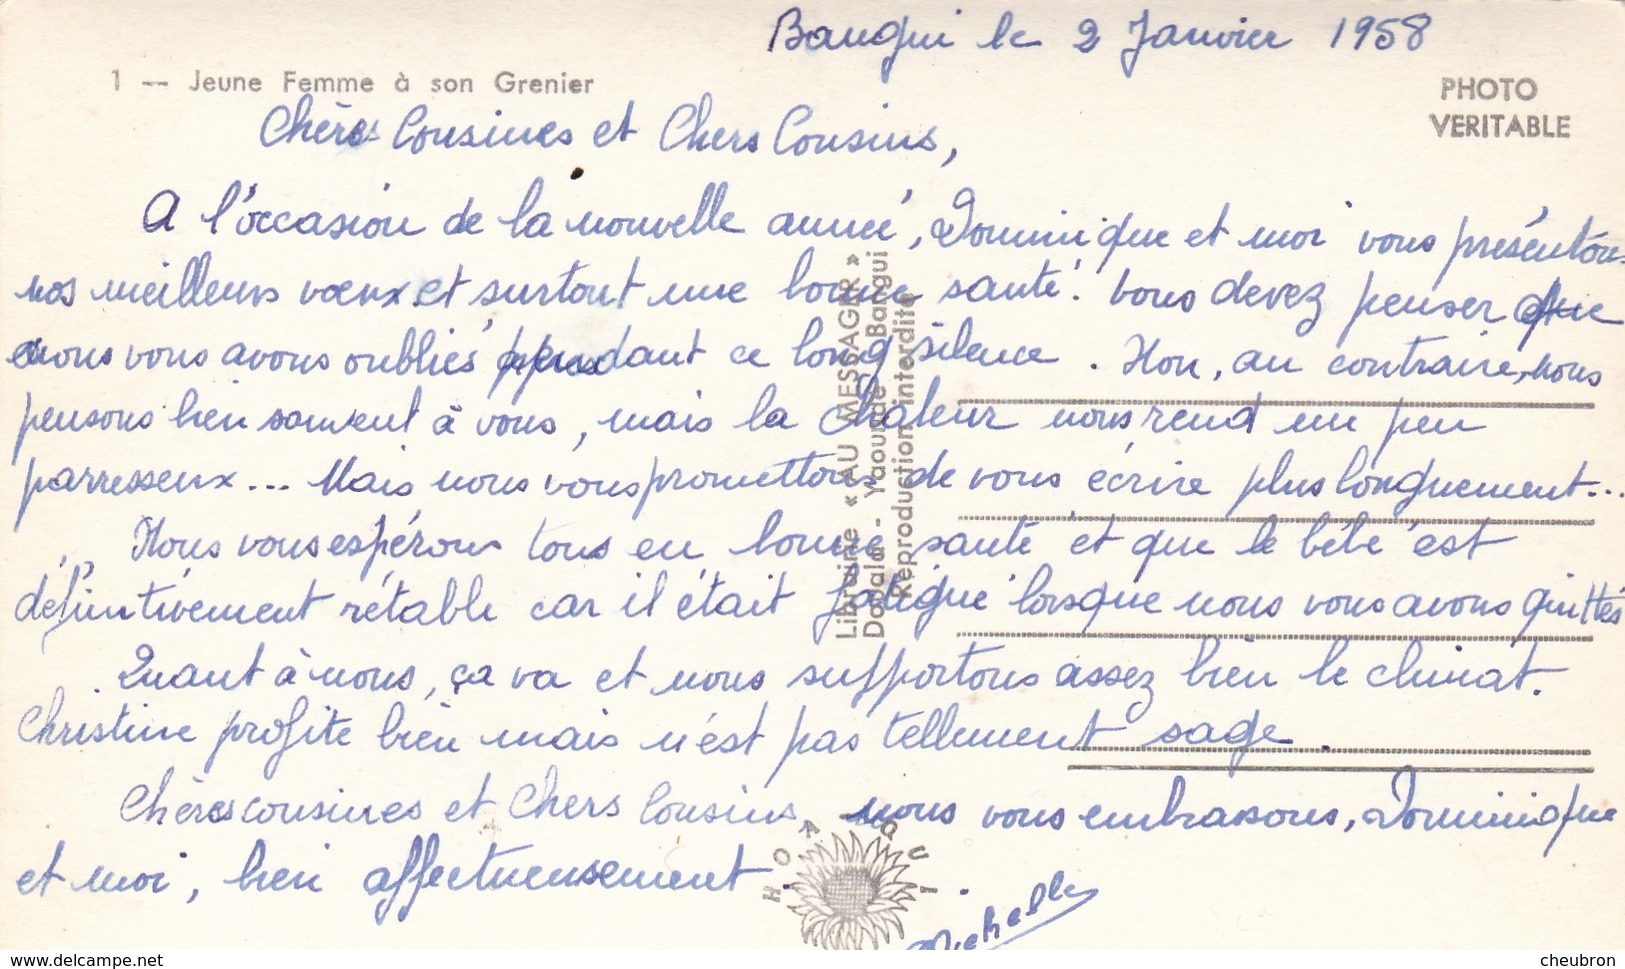 Bangui le 2 Janvier 1958
1 -- Jeune Femme à son Grenier
PHOTO
VERITABLE
Chères Cousines et Chers Cousins,
A l'occasion de la nouvelle année, Dominique et moi vous présentons
nos meilleurs vœux et surtout une bonne santé. Vous devez penser que
nous vous avons oubliés pendant ce long silence. Non, au contraire, nous
pensons bien souvent à vous, mais la chaleur nous rend un peu
parresseux... Mais nous vous promettons de vous écrire plus longuement...
Nous vous espérons tous en bonne santé et que le bébé est
définitivement rétabli car il était fatigué lorsque nous vous avons quittés
Quant à nous, ça va et nous supportons assez bien le climat.
Christine profite bien mais n'est pas tellement sage.
Chères cousines et Chers Cousins, nous vous embrassons, Dominique
et moi, bien affectueusement.
Michelle
Librairie « AU MESSAGER »
Douala - Yaoundé - Bangui
Reproduction interdite
HOA-QUI
delcampe.net
cheubron